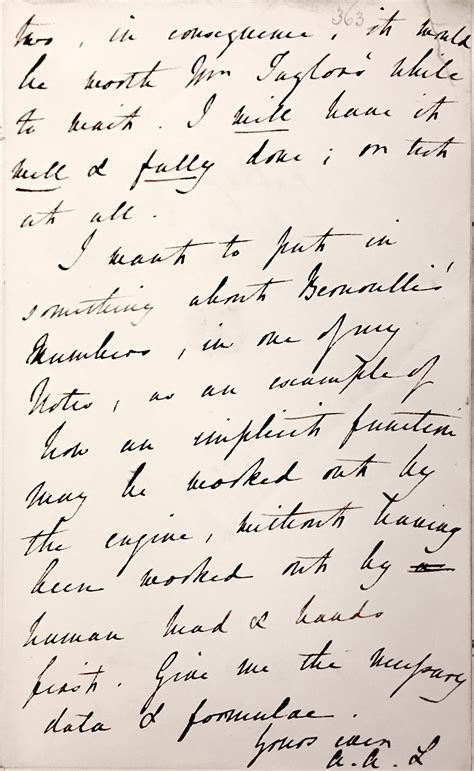 363
two, in consequence, it would
be worth Mr Taylor's while
to wait. I will have it
well & fully done; or not
at all.
I want to put in
something about Bernoulli's
Numbers, in one of my
Notes, as an example of
how an implicit function
may be worked out by
the engine, without having
been worked out by a
human head & hands
first. Give me the necessary
data & formulae.
Yours ever
A. A. L